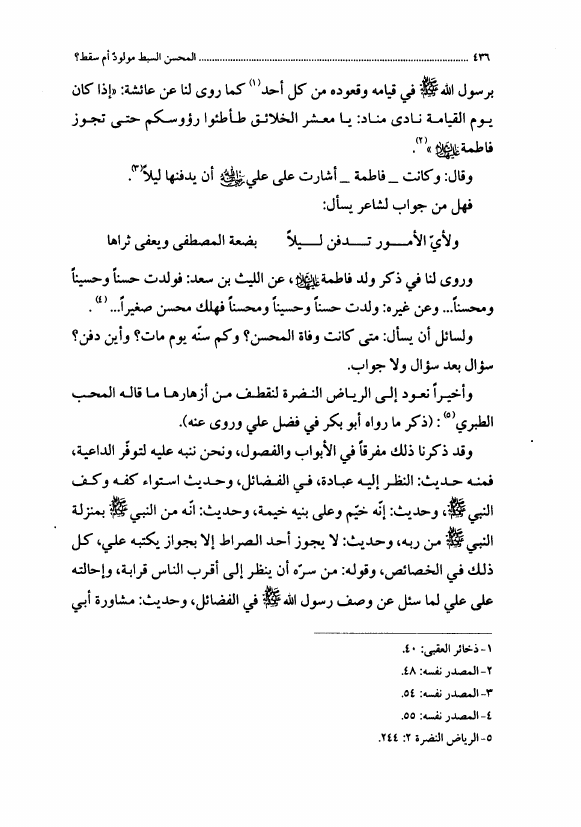 ٤٣٦ ........................ المحسن السبط مولودٌ أم سقط؟
برسول الله ﷺ في قيامه وقعوده من كل أحد(١) كما روى لنا عن عائشة: «إذا كان
يوم القيامة نادى مناد: يا معشر الخلائق طأطئوا رؤوسكم حتى تجوز
فاطمة عليها السلام »(٢).
وقال: وكانت _ فاطمة _ أشارت على علي أن يدفنها ليلاً(٣).
فهل من جواب لشاعر يسأل:
ولأيّ الأمور تدفن ليلاً بضعة المصطفى ويعفى ثراها
وروى لنا في ذكر ولد فاطمة عليها السلام، عن الليث بن سعد: فولدت حسناً وحسيناً
ومحسناً... وعن غيره: ولدت حسناً وحسيناً ومحسناً فهلك محسن صغيراً...(٤) .
ولسائل أن يسأل: متى كانت وفاة المحسن؟ وكم سنّه يوم مات؟ وأين دفن؟
سؤال بعد سؤال ولا جواب.
وأخيراً نعود إلى الرياض النضرة لنقطف من أزهارها ما قاله المحب
الطبري(٥) : (ذكر ما رواه أبو بكر في فضل علي وروى عنه).
وقد ذكرنا ذلك مفرقاً في الأبواب والفصول، ونحن ننبه عليه لتوفّر الداعية،
فمنه حديث: النظر إليه عبادة، في الفضائل، وحديث استواء كفه وكف
النبي ﷺ، وحديث: إنّه خيّم وعلى بنيه خيمة، وحديث: انّه من النبي ﷺ بمنزلة
النبي ﷺ من ربه، وحديث: لا يجوز أحد الصراط إلا بجواز يكتبه علي، كل
ذلك في الخصائص، وقوله: من سرّه أن ينظر إلى أقرب الناس قرابة، وإحالته
على علي لما سئل عن وصف رسول الله ﷺ في الفضائل، وحديث: مشاورة أبي
١- ذخائر العقبى: ٤٠.
٢- المصدر نفسه: ٤٨.
٣- المصدر نفسه: ٥٤.
٤- المصدر نفسه: ٥٥.
٥- الرياض النضرة ٢: ٢٤٤.